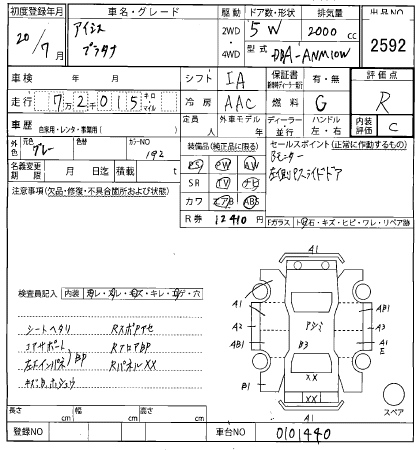 初度登録年月 車名・グレード 駆動 ドア数・形状 排気量 出品NO
20/7月 アイシス プラタナ 2WD・4WD 5 W 2000 CC 2592
型式 DBA-ANM10W
車検 年 月 シフト IA 保証書 有・無 評価点
走行 7万2千015キロ・マイル 冷房 AAC 燃料 G R
車歴 自家用・レンタ・事業用( ) 定員 人 外車モデル 年 ディーラー・並行 ハンドル 左・右 内装評価 C
外色 元色 グレー 色替 カラーNO 192 装備品(純正品に限る) セールスポイント(正常に作動するもの)
名義変更期限 月 日迄 積載 t PS PW Bモーター
注意事項(欠品・修復・不具合箇所および状態) SR TV ナビ 左側パワスライドドア
カワ エアB ABS
R券 12410 円 Fガラス ト石・キズ・ヒビ・ワレ・リペア跡
検査員記入 内装
シートヘタリ Rスポタイセ
コアサポート RフロアBP
左右インパネ)BP RパネルXX
A1
A1 AB1
A2 A3
AB1 A1
E
B1
B3
XX
XX
A1
スペア
長さ cm 幅 cm 高さ cm
登録NO 車台NO 0101440